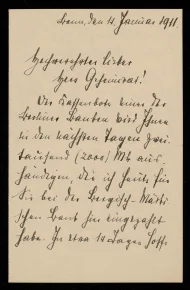 Bonn, den 11. Januar 1911.
Hochverehrter lieber
Herr Geheimrat!
Der Kassenbote einer der
Berliner Banken wird Ihnen
in den nächsten Tagen zwei-
tausend (2000) Mk aus-
händigen, die ich heute für
Sie bei der Bergisch-Märki-
schen Bank hier eingezahlt
habe. In etwa 14 Tagen hoffe